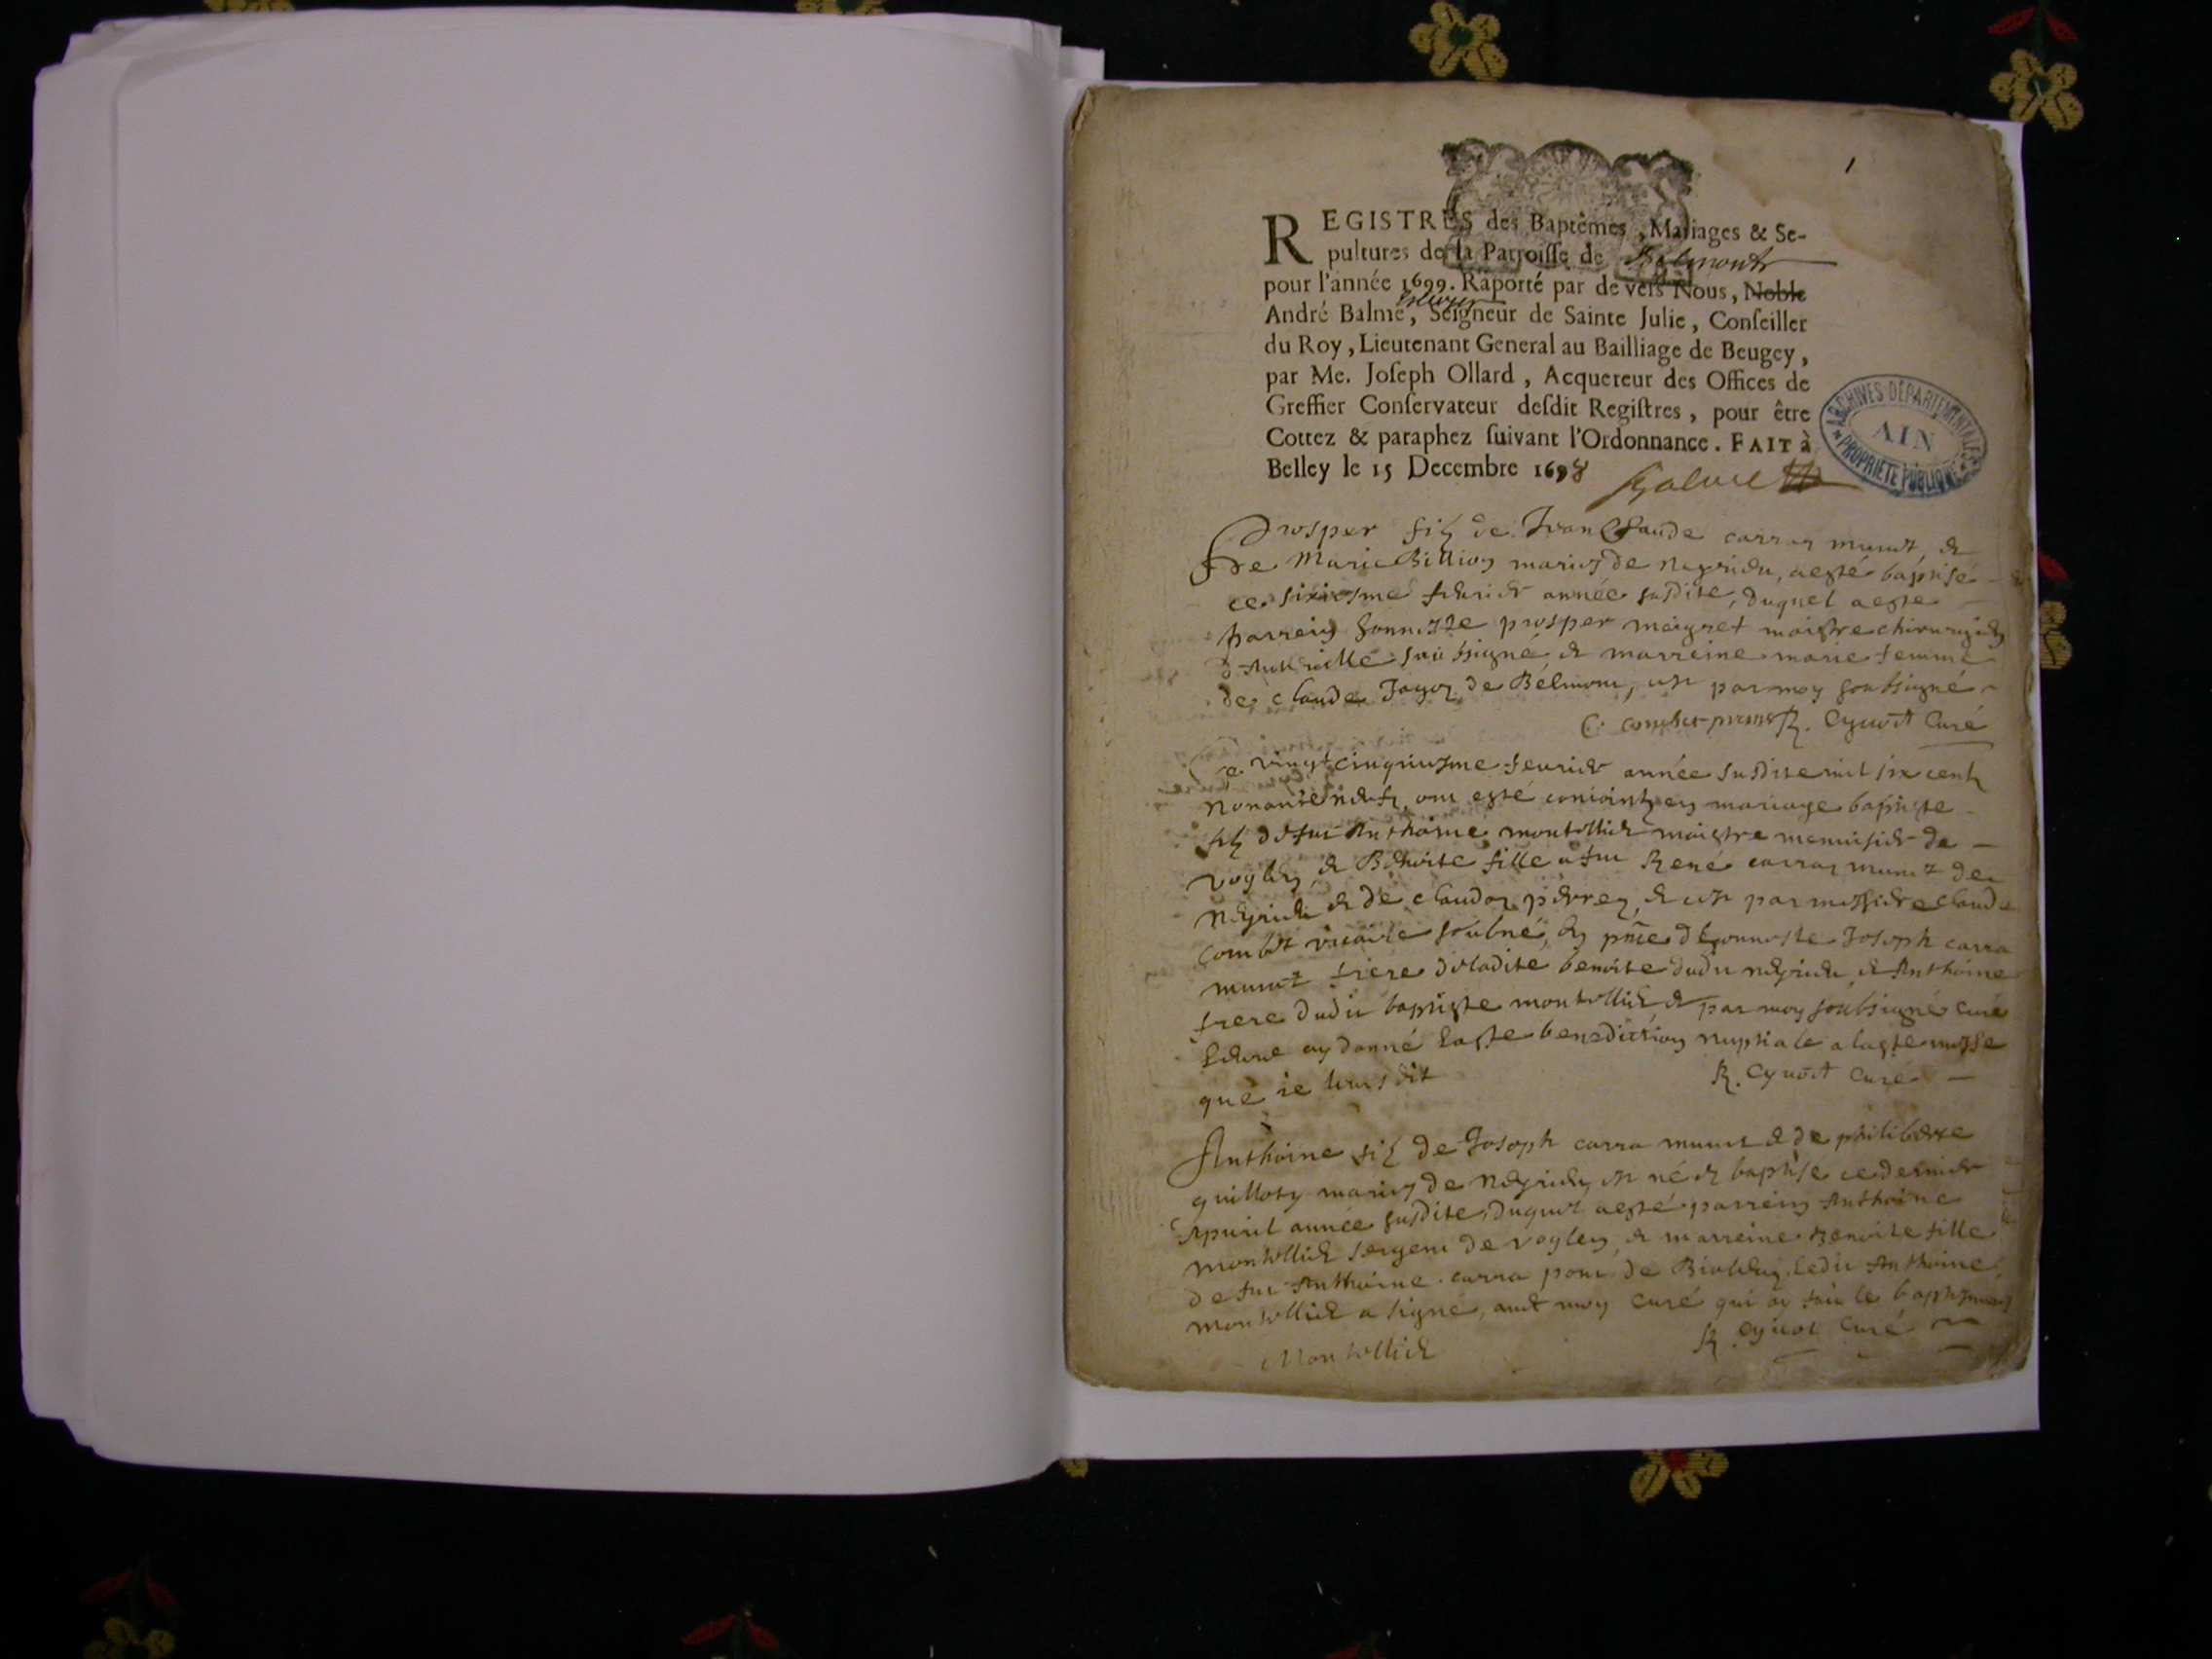 1
REGISTRES des Baptêmes, Mariages & Se-
pultures de la Parroisse de Belmont
pour l'année 1699. Raporté par de vers Nous, Noble
Escuyer
André Balme, Seigneur de Sainte Julie, Conseiller
du Roy, Lieutenant General au Bailliage de Beugey,
par Me. Joseph Ollard, Acquereur des Offices de
Greffier Conservateur desdit Registres, pour être
Cottez & paraphez suivant l'Ordonnance. FAIT à
Belley le 15 Decembre 1698
Balme
ARCHIVES DÉPARTEMENTALES
AIN
PROPRIÉTÉ PUBLIQUE
Prosper filz de Jean Claude carraz munet, et
de Marie Billion mariez de neyrieu, a esté baptisé
ce sixiesme feurier année susdite, duquel a esté
parrein honneste prosper maigret maistre chirurgien
soubsigné, et marreine marie femme
de claude Jagoz de Belmont, par moy soubsigné
C. combet R. Cynod Curé
Ce vingtcinquiesme feurier année susdite mil six centz
nonante neufz, ont esté conioint en mariage baptiste
filz de fut Anthoine montillier maistre menuisier de
voglen, et Benoite fille a fut René carraz munet de
neyrieu et de claudaz pierrez, et par messire claude
combet vicaire soubné, en pnce d'honneste Joseph carra
munet frere de ladite benoite dudit neyrieu, et Anthoine
frere dudit baptiste montillier, et par moy soubsigné curé
ay donné la benediction nuptiale a la messe
que ie leurs dit R. Cynod Curé
Anthoine filz de Joseph carra munet et de philiberte
guillotz mariez de neyrieu, est né et baptisé ce dernier
Apuril année susdite, duquel a esté parrein Anthoine
montillier sergent de voglen, et marreine Benoite fille
de fut Anthoine carra de ledit Anthoine
montillier a signé, auec moy Curé qui ay fait le baptesme
Montillier R. Cynod Curé